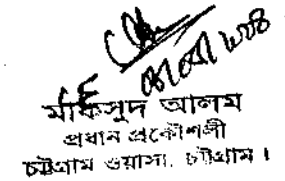 মাকসুদ আলম
প্রধান প্রকৌশলী
চট্টগ্রাম ওয়াসা, চট্টগ্রাম।